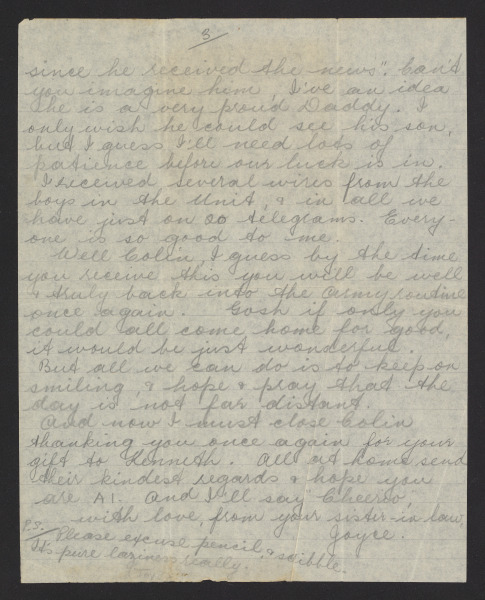 3
since he received the news". Can't
you imagine him, I've an idea
he is a very proud Daddy. I
only wish he could see his son,
but I guess I'll need lots of
patience before our luck is in.
I received several wires from the
boys in the Unit, & in all we
have just on 20 telegrams. Every-
one is so good to me.
Well Colin, I guess by the time
you receive this you will be well
& truly back into the army routine
once again. Gosh if only you
could all come home for good,
it would be just wonderful.
But all we can do is to keep on
smiling, & hope & pray that the
day is not far distant.
And now I must close Colin
thanking you once again for your
gift to Kenneth. All at home send
their kindest regards & hope you
are A1. And I'll say "Cheerio",
with love, from your sister-in law,
Joyce.
P.S. Please excuse pencil, & scibble.
Its pure laziness really.